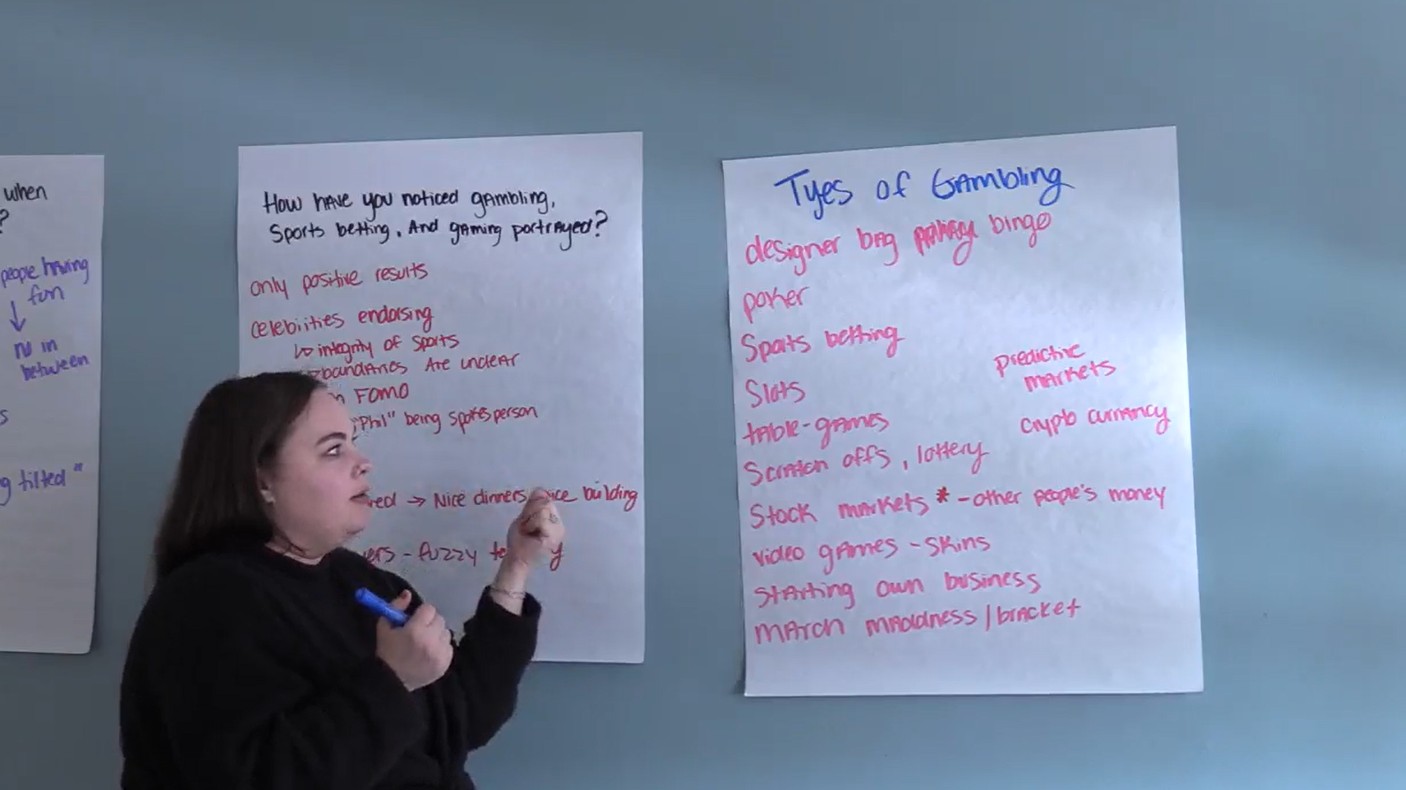 when
?
people having
fun
↓
in
between
s
g tilted"
How have you noticed gambling,
Sports betting, And gaming portrayed?
only positive results
celebiities endorsing
↳ integrity of sports
boundaries Are unclear
FOMO
"Phil" being spokesperson
red → Nice dinners, nice building
ers - fuzzy
Tyes of Gambling
designer bag bingo
poker
Sports betting
Slots
table-games
Scratch offs, lottery
Predictive
markets
Crypto currancy
Stock markets * - other people's money
video games - skins
starting own business
march maddness/bracket